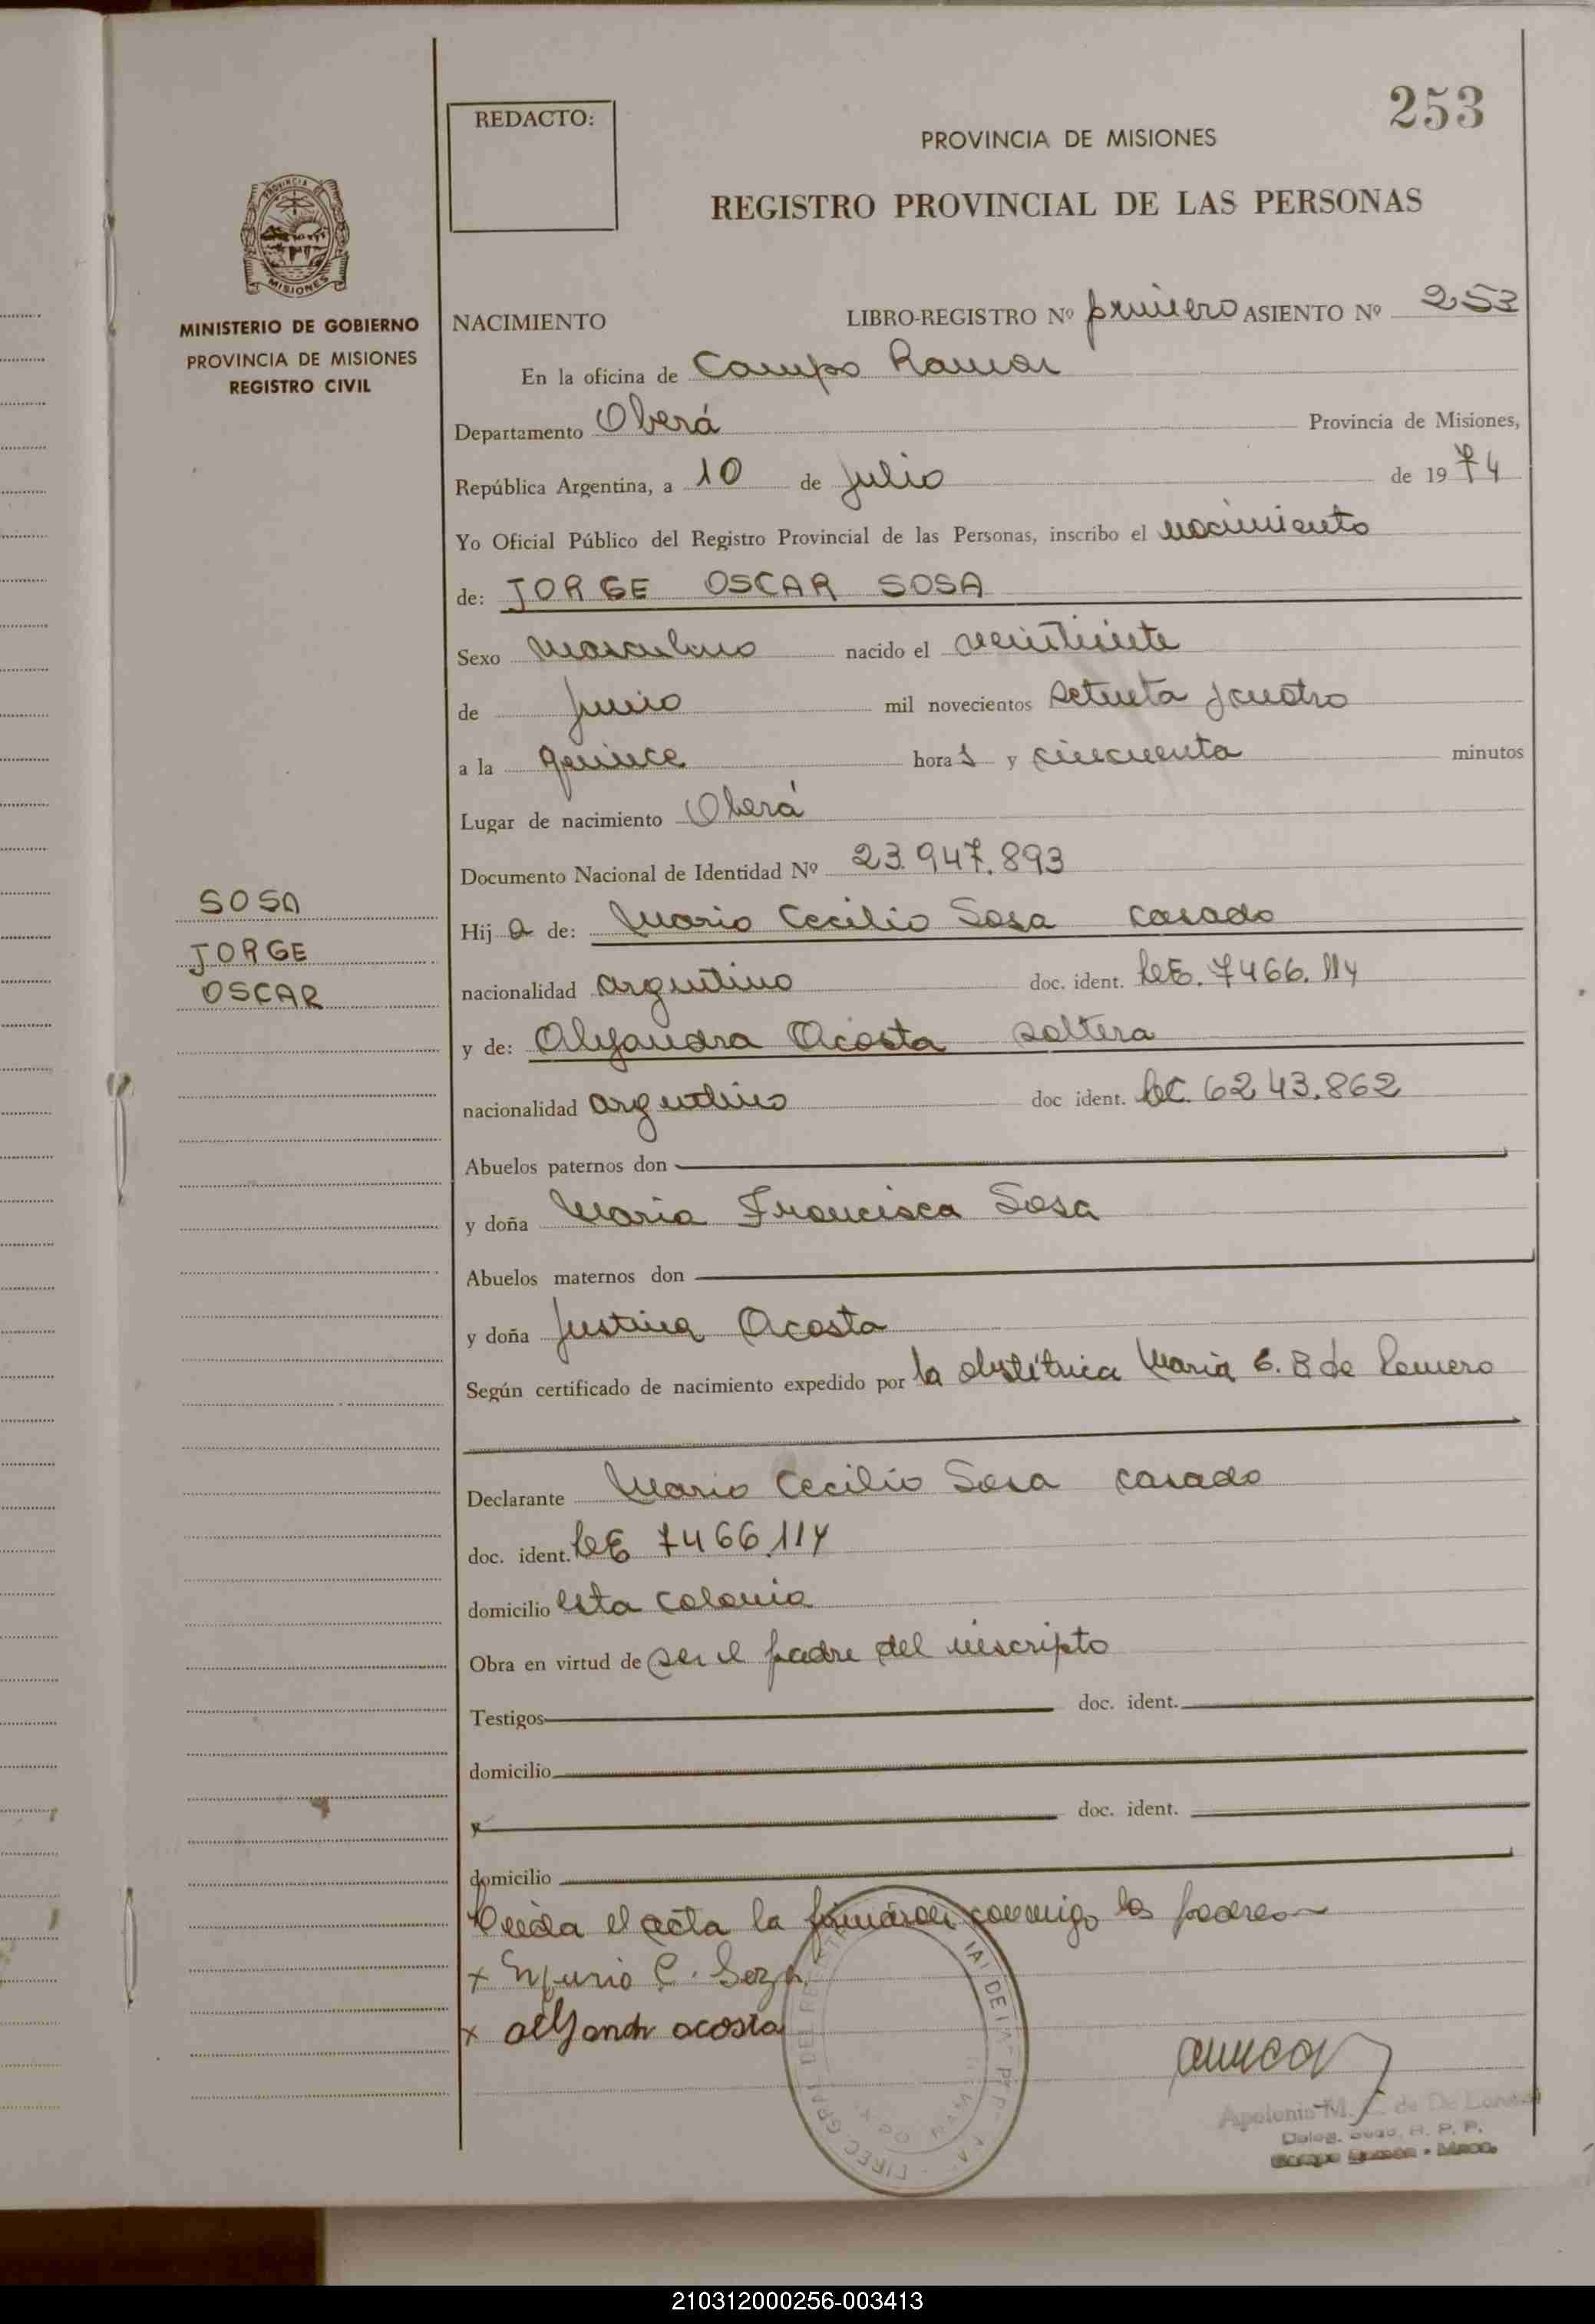 253
REDACTO:
PROVINCIA DE MISIONES
REGISTRO PROVINCIAL DE LAS PERSONAS
PROVINCIA DE
MISIONES
MINISTERIO DE GOBIERNO
PROVINCIA DE MISIONES
REGISTRO CIVIL
NACIMIENTO LIBRO-REGISTRO Nº primero ASIENTO Nº 253
En la oficina de Campo Ramon
Departamento Oberá Provincia de Misiones,
República Argentina, a 10 de julio de 1974
Yo Oficial Público del Registro Provincial de las Personas, inscribo el nacimiento
de: JORGE OSCAR SOSA
Sexo masculino nacido el veintisiete
de junio mil novecientos setenta y cuatro
a la quince horas y cincuenta minutos
Lugar de nacimiento Oberá
Documento Nacional de Identidad Nº 23.947.893
SOSA
JORGE
OSCAR
Hijo de: Mario Cecilio Sosa casado
nacionalidad argentino doc. ident. L.E. 7466.114
y de: Alejandra Acosta soltera
nacionalidad argentino doc ident. L.C. 6243.862
Abuelos paternos don
y doña Maria Francisca Sosa
Abuelos maternos don
y doña Justina Acosta
Según certificado de nacimiento expedido por la obstétrica Maria E. B de Romero
Declarante Mario Cecilio Sosa casado
doc. ident. L.E 7466.114
domicilio esta colonia
Obra en virtud de ser el padre del inscripto
Testigos doc. ident.
domicilio
y doc. ident.
domicilio
Leida el acta la firmaron conmigo los padres
x Mario C. Soza
x alejandr acosta
Apolonia M. C. de De
Deleg. R. P. P.
210312000256-003413